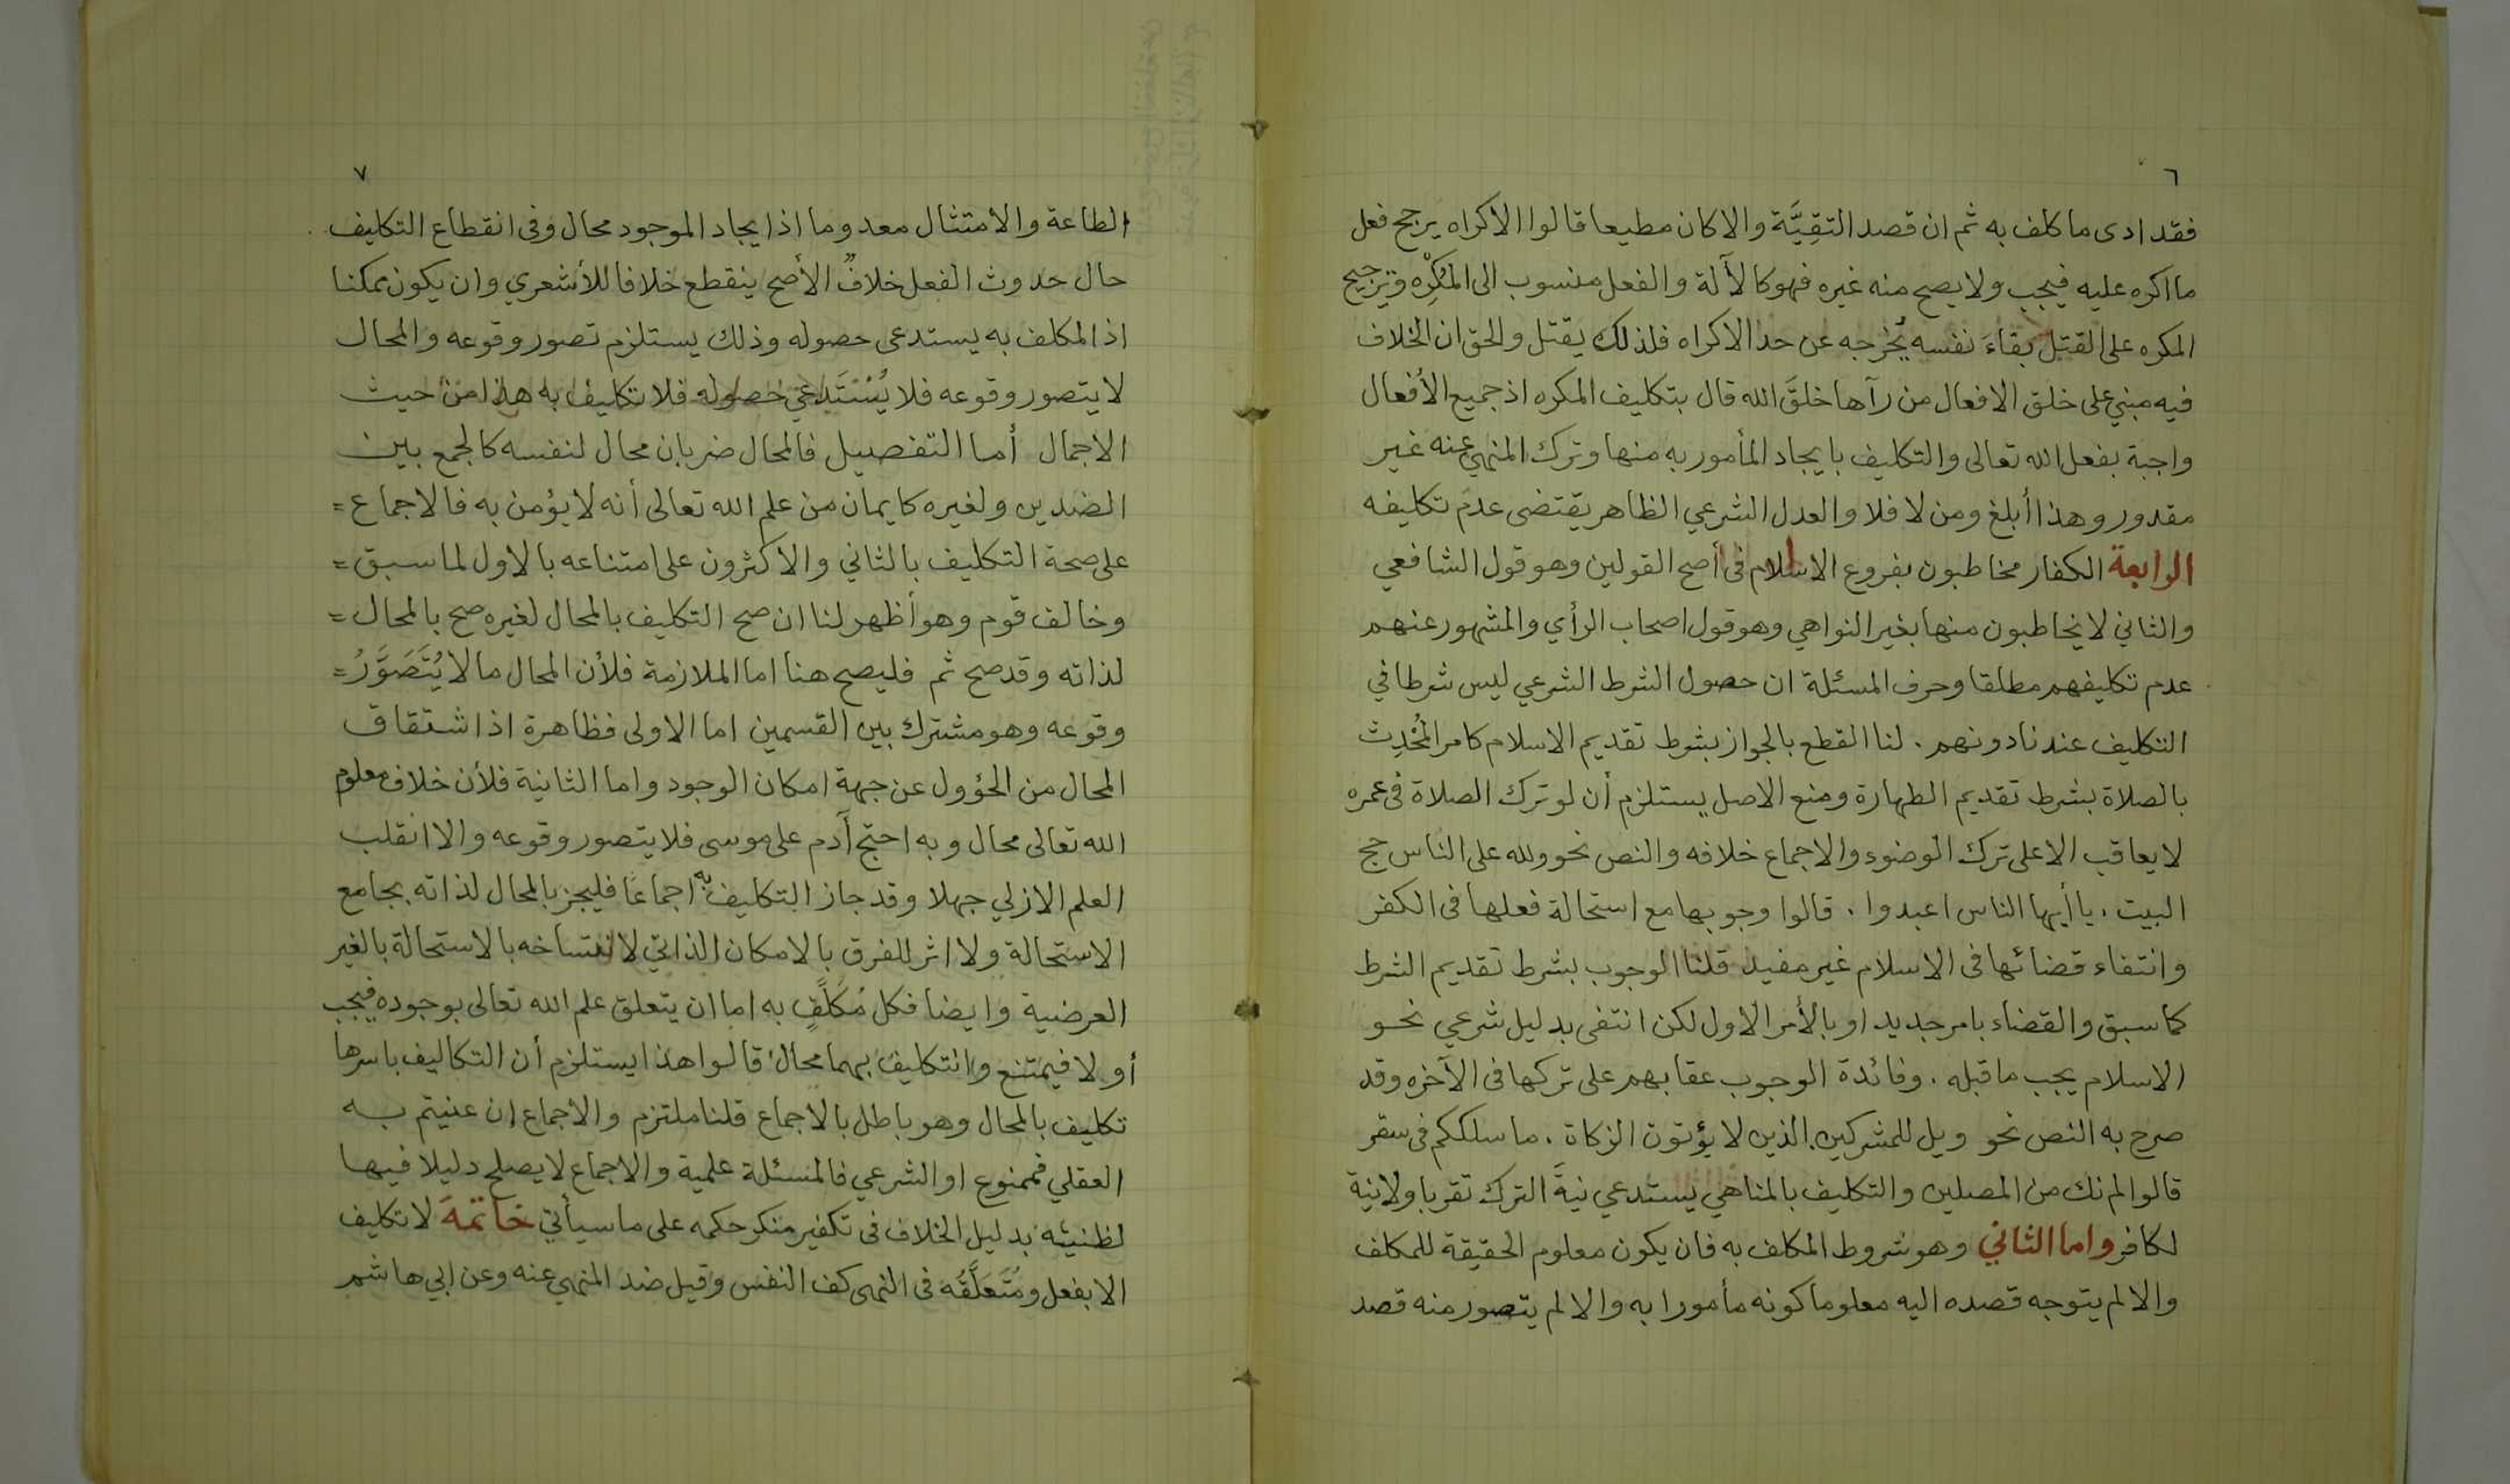 ٦
فقد ادى ما كلف به ثم ان قصد التقِيَّة والا كان مطيعا قالوا الاكراه يرجح فعل
ما اكره عليه فيجب ولا يصح منه غيره فهو كالآلة والفعل منسوب الى المُكرِه وترجيح
المكره على القتل بقاءَ نفسه يُخرجه عن حد الاكراه فلذلك يقتل والحق ان الخلاف
فيه مبني على خلق الافعال من رآها خلقَ الله قال بتكليف المكره اذ جميع الأفعال
واجبة بفعل الله تعالى والتكليف بايجاد المأمور به منها وترك المنهي عنه غير
مقدور وهذا أبلغ ومن لا فلا والعدل الشرعي الظاهر يقتضى عدم تكليفه
الرابعة الكفار مخاطبون بفروع الاسلام فى أصح القولين وهو قول الشافعي
والثاني لا يخاطبون منها بغير النواهي وهو قول اصحاب الرأي والمشهور عنهم
عدم تكليفهم مطلقا وحرف المسئلة ان حصول الشرط الشرعي ليس شرطا في
التكليف عندنا دونهم . لنا القطع بالجواز بشرط تقديم الاسلام كامر المُحْدِث
بالصلاة بشرط تقديم الطهارة ومنع الاصل يستلزم أن لو ترك الصلاة فى عمره
لا يعاقب الا على ترك الوضوء والاجماع خلافه والنص نحو ولله على الناس حج
البيت . يا أيها الناس اعبدوا . قالوا وجوبها مع استحالة فعلها فى الكفر
وانتفاء قضائها فى الاسلام غير مفيد قلنا الوجوب بشرط تقديم الشرط
كما سبق والقضاء بامر جديد او بالأمر الاول لكن انتفى بدليل شرعي نحو
الاسلام يجب ما قبله . وفائدة الوجوب عقابهم على تركها فى الآخره وقد
صرح به النص نحو ويل للمشركين الذين لا يؤتون الزكاة . ما سلككم فى سقر
قالوا لم نك من المصلين والتكليف بالمناهي يستدعي نيةَ الترك تقربا ولا نية
لكافر واما الثاني وهو شروط المكلف به فان يكون معلوم الحقيقة للمكلف
والا لم يتوجه قصده اليه معلوما كونه مأمورا به والا لم يتصور منه قصد
٧
الطاعة والامتثال معدوما اذ ايجاد الموجود محال وفى انقطاع التكليف
حال حدوث الفعل خلافٌ الأصح ينقطع خلافا للأشعري وان يكون ممكنا
اذ المكلف به يستدعى حصوله وذلك يستلزم تصور وقوعه والمحال
لا يتصور وقوعه فلا يُسْتَدعَى حصوله فلا تكليف به هذا من حيث
الاجمال أما التفصيل فالمحال ضربان محال لنفسه كالجمع بين
الضدين ولغيره كايمان من علم الله تعالى أنه لا يؤمن به فالاجماع =
على صحة التكليف بالثاني والاكثرون على امتناعه بالاول لما سبق =
وخالف قوم وهو أظهر لنا ان صح التكليف بالمحال لغيره صح بالمحال =
لذاته وقد صح ثم فليصح هنا اما الملازمة فلأن المحال ما لا يُتَصَوَّرُ =
وقوعه وهو مشترك بين القسمين اما الاولى فظاهرة اذ اشتقاق
المحال من الحؤول عن جهة امكان الوجود واما الثانية فلأن خلاف معلوم
الله تعالى محال وبه احتج آدم على موسى فلا يتصور وقوعه والا انقلب
العلم الازلي جهلا وقد جاز التكليف به اجماعًا فليجز بالمحال لذاته بجامع
الاستحالة ولا اثر للفرق بالامكان الذاتي لانتساخه بالاستحالة بالغير
العرضية وايضا فكل مُكَلَّفٍ به اما ان يتعلق علم الله تعالى بوجوده فيجب
أو لا فيمتنع والتكليف بهما محال قالوا هذا يستلزم أن التكاليف باسرها
تكليف بالمحال وهو باطل بالاجماع قلنا ملتزم والاجماع إن عنيتم به
العقلي فممنوع او الشرعي فالمسئلة علمية والاجماع لا يصلح دليلا فيها
لظنيته بدليل الخلاف فى تكفير منكر حكمه على ما سيأتي خاتمة لا تكليف
الا بفعل ومُتَعَلَّقُه فى النهى كف النفس وقيل ضد المنهي عنه وعن ابي هاشم